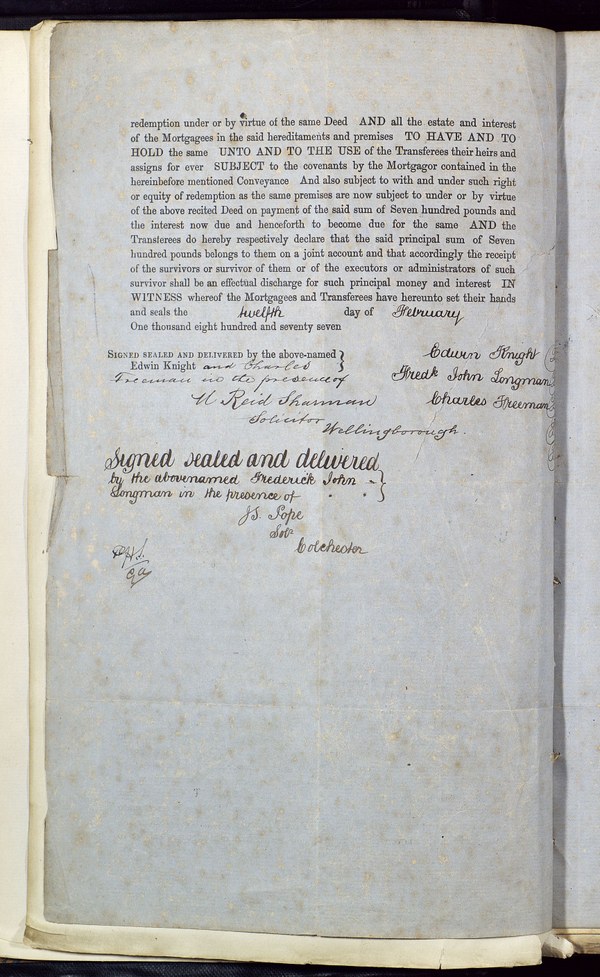 redemption under or by virtue of the same Deed AND all the estate and interest
of the Mortgagees in the said hereditaments and premises TO HAVE AND TO
HOLD the same UNTO AND TO THE USE of the Transferees their heirs and
assigns for ever SUBJECT to the covenants by the Mortgagor contained in the
hereinbefore mentioned Conveyance And also subject to with and under such right
or equity of redemption as the same premises are now subject to under or by virtue
of the above recited Deed on payment of the said sum of Seven hundred pounds and
the interest now due and henceforth to become due for the same AND the
Transferees do hereby respectively declare that the said principal sum of Seven
hundred pounds belongs to them on a joint account and that accordingly the receipt
of the survivors or survivor of them or of the executors or administrators of such
survivor shall be an effectual discharge for such principal money and interest IN
WITNESS whereof the Mortgagees and Transferees have hereunto set their hands
and seals the twelfth day of February
One thousand eight hundred and seventy seven
SIGNED SEALED AND DELIVERED by the above-named
Edwin Knight and Charles
Freeman in the presence of
Edwin Knight
Fredk John Longman
Charles Freeman
Reid Sharman
Solicitor
Wellingborough.
Signed sealed and delivered
by the abovenamed Frederick John
Longman in the presence of
Pope
Solr
Colchester